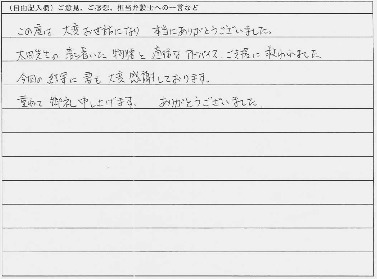 (自由記入欄) ご意見、ご感想、担当弁護士への一言など
この度は 大変お世話になり 本当にありがとうございました。
太田先生の 落ち着いた 物腰と 適確な アドバイス、ご支援に 救われました。
今回の 結果に 君も 大変 感謝しております。
重ねて 御礼 申し上げます。 ありがとうございました。